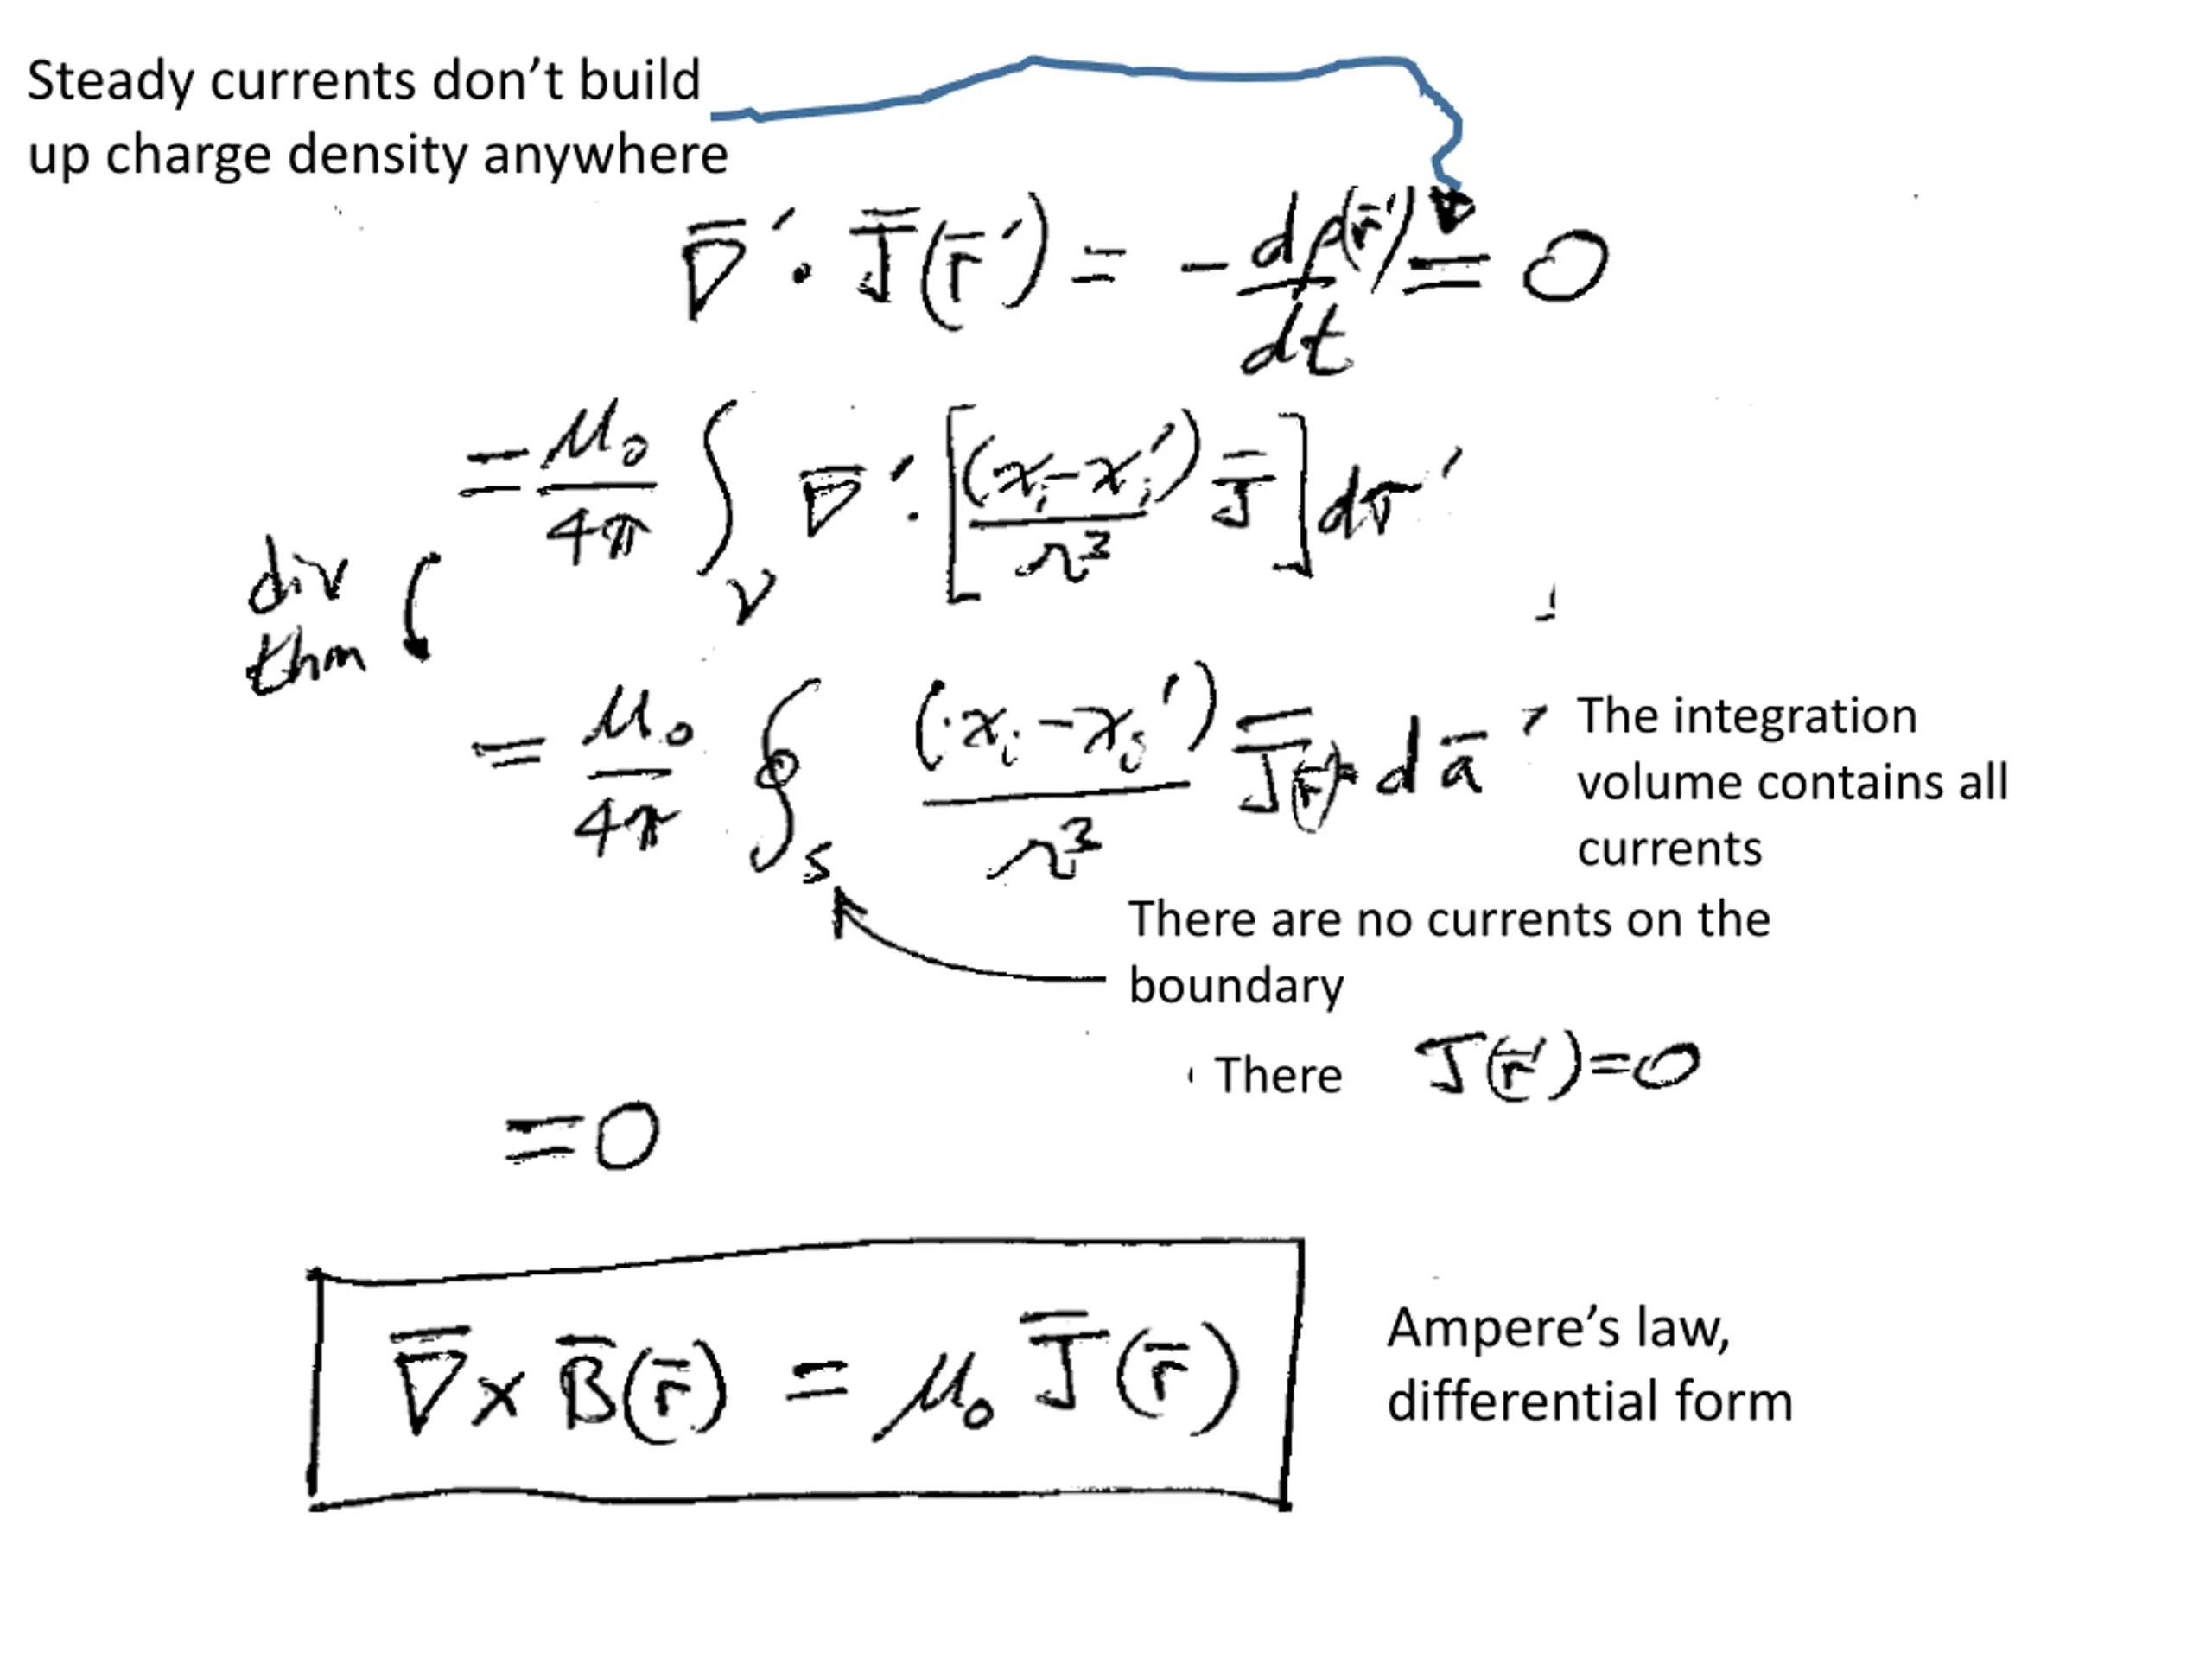 Steady currents don’t build
up charge density anywhere
∇̄′ · J̄(r̄′) = - dρ(r̄′)/dt = 0
= μ₀/4π ∫_V ∇̄′ · [(xᵢ-xᵢ′)/r³ J̄] dτ′
div
thm
= μ₀/4π ∮_S (xᵢ-xᵢ′)/r³ J̄(r̄′) · dā′
The integration
volume contains all
currents
There are no currents on the
boundary
There J̄(r̄′)=0
=0
∇̄ x B̄(r̄) = μ₀ J̄(r̄)
Ampere’s law,
differential form